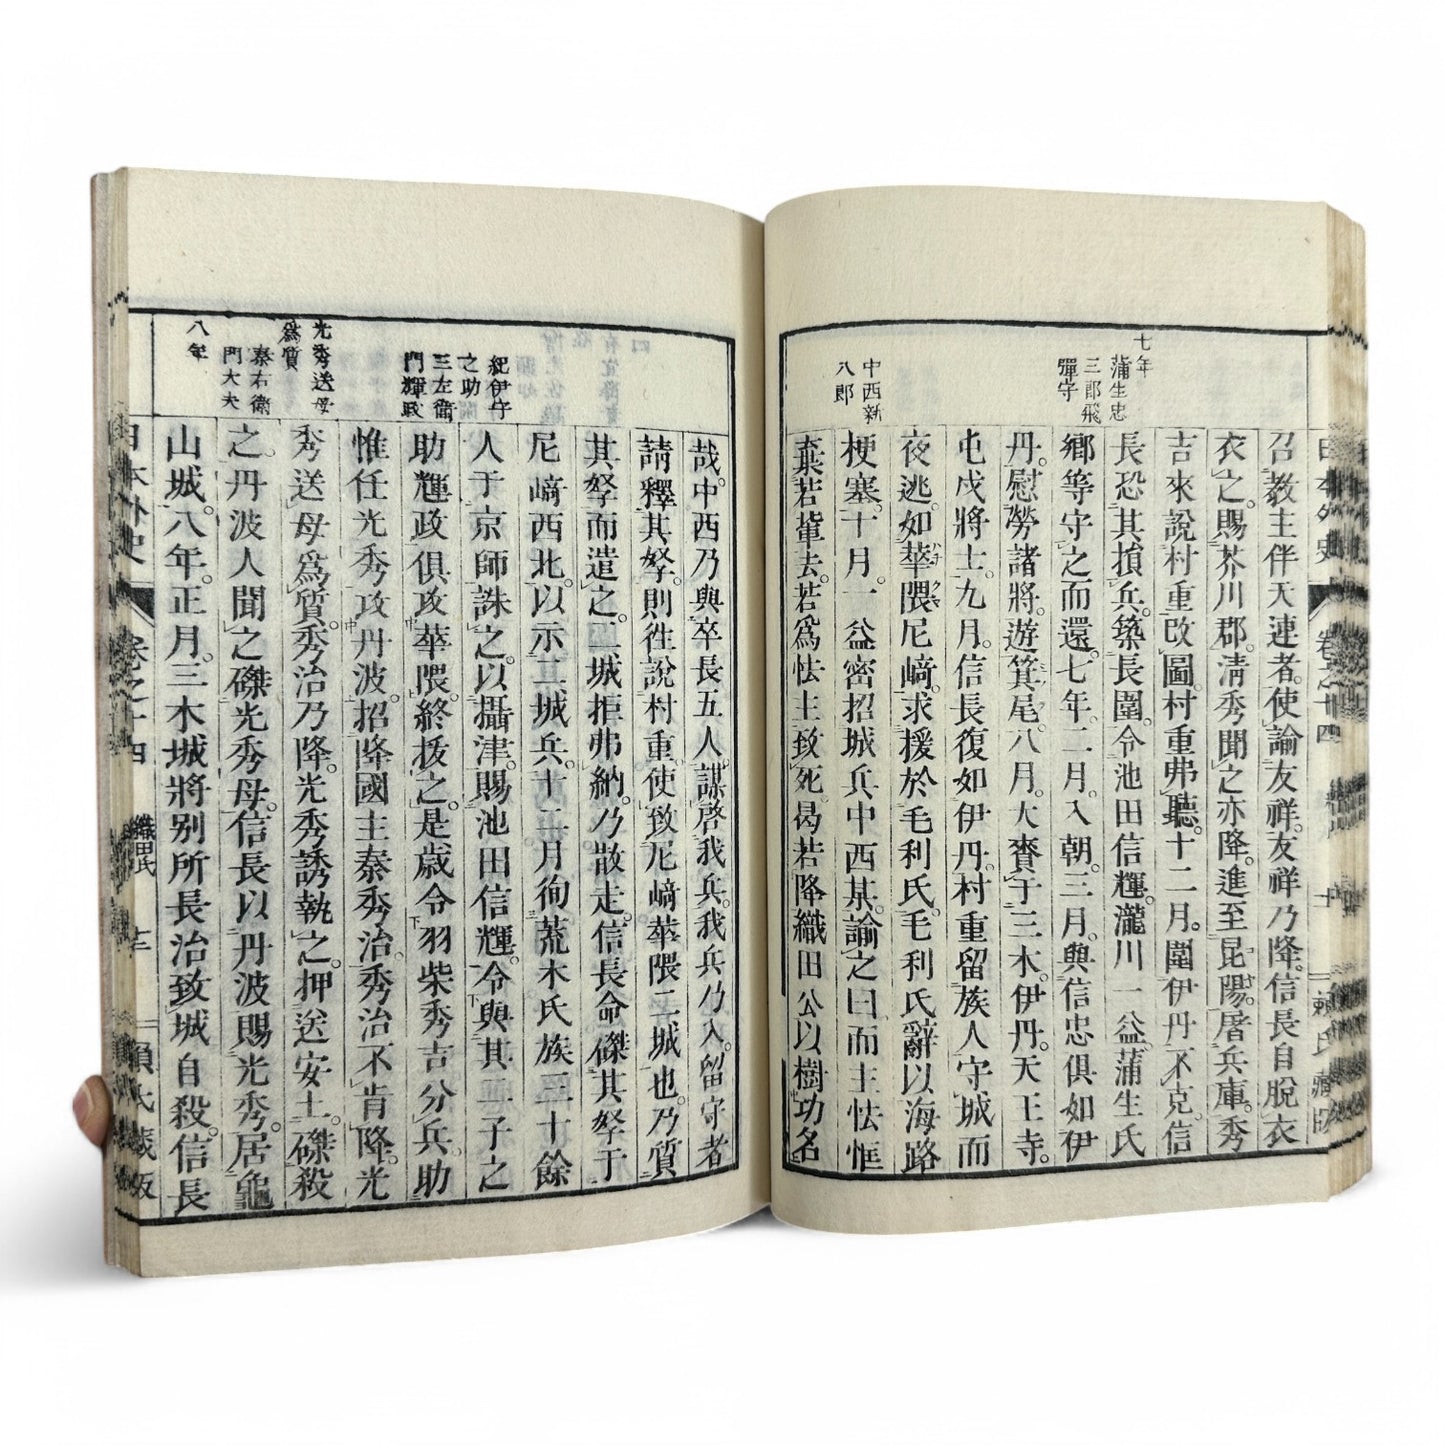 七年
蒲生忠
三郎飛
彈守
中西新
八郎
召教主伴天連者。使諭友祥。友祥乃降。信長自脫衣
衣之。賜芥川郡。淸秀聞之亦降。進至昆陽。屠兵庫。秀
吉來說村重改圖。村重弗聽。十二月。圍伊丹不克。信
長恐其損兵。築長圍。令池田信輝瀧川一益蒲生氏
鄕等守之而還。七年二月。入朝。三月。與信忠俱如伊
丹。慰勞諸將。遊箕尾。八月。大賚于三木。伊丹。天王寺。
屯戍將士。九月。信長復如伊丹。村重留族人守城而
夜逃。如華隈尼﨑。求援於毛利氏。毛利氏辭以海路
梗塞。十月。一益密招城兵中西某。諭之曰。而主怯恇
棄若輩去。若爲怯主致死。曷若降織田公以樹功名
哉。中西乃與卒長五人謀。啓我兵。我兵乃入。留守者
請釋其孥。則徃說村重。使致尼﨑華隈二城也。乃質
其孥而遣之。二城拒弗納。乃散走。信長命磔其孥于
尼﨑西北。以示二城兵。十二月。徇荒木氏族三十餘
人于京師誅之。以攝津賜池田信輝。令與其二子之
助輝政俱攻華隈。終拔之。是歲令羽柴秀吉分兵。助
惟任光秀攻丹波。招降國主秦秀治。秀治不肯降。光
秀送母爲質。秀治乃降。光秀誘執之。押送安土。磔殺
之。丹波人聞之磔光秀母。信長以丹波賜光秀。居龜
山城。八年正月。三木城將別所長治致城自殺。信長
紀伊守
之助
三左衞
門輝政
光秀送母
爲質
秦右衛
門大夫
八年
日本外史
卷之十四
織田氏
十二
賴氏藏版